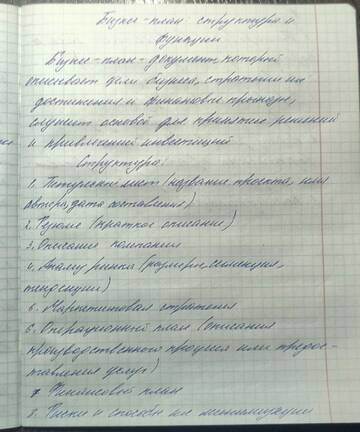 Бизнес-план структура и
функции
Бизнес-план - документ, который
описывает цели бизнеса, стратегии их
достижения и финансовые прогнозы,
служит основой для принятие решений
и привлечений инвестиций
Структура:
1. Титульный лист (название проекта, имя
автора, дата составления)
2. Резюме (краткое описание)
3. Описание компании
4. Анализ рынка (размеры, сегментация,
тенденции)
5. Маркетинговая стратегия
6. Операционный план (описания
производственного процесса или предос-
тавления услуг)
7 Финансовый план
8. Риски и способы их минимизации